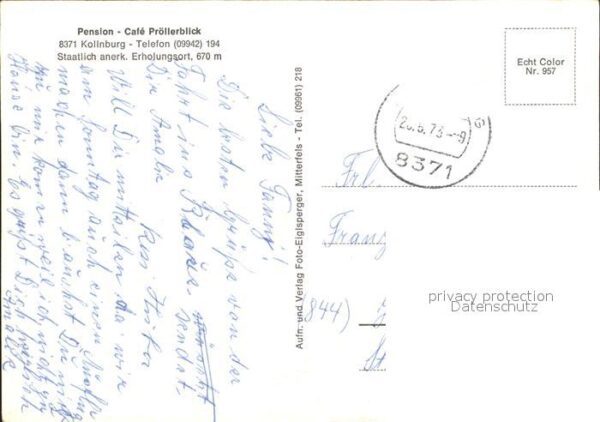 Pension - Café Pröllerblick
8371 Kollnburg - Telefon (09942) 194
Staatlich anerk. Erholungsort, 670 m
Echt Color
Nr. 957
26.5.73-9
8371
Aufn. und Verlag Foto-Eiglsperger, Mitterfels - Tel. (09961) 218
Liebe Fanny!
Die besten Grüße von der
Fahrt ins Blaue sendet
Dir Amalie
Resi Huber
Will Dir mitteilen da wir
am Sonntag auch einen Ausflug
machen dann brauchst Du nicht
zu mir kommen weil ich nicht zu
Hause bin. Es grüßt Dich
Amalie
Frl.
Franz
(844)
privacy protection
Datenschutz